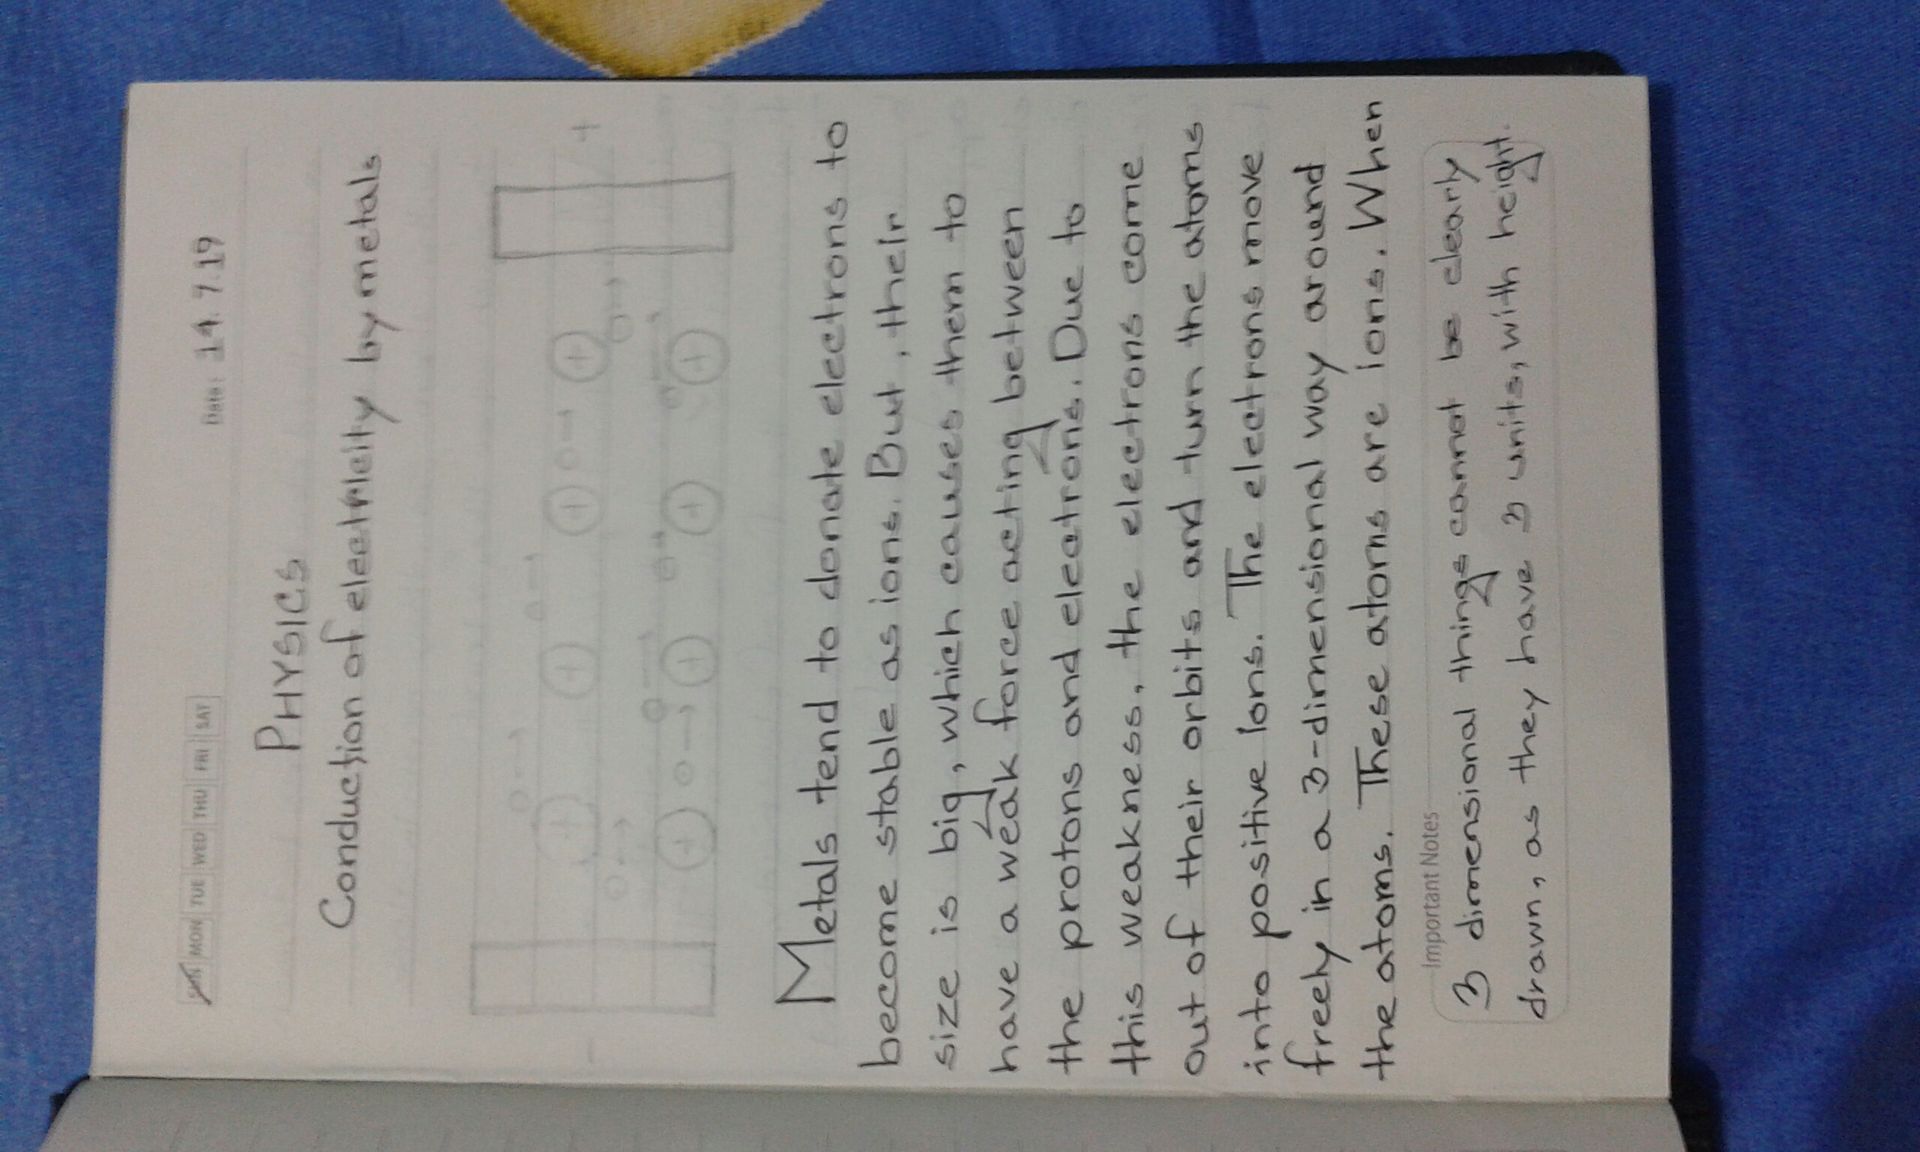 SUN MON TUE WED THU FRI SAT
Date: 14.7.19
PHYSICS
Conduction of electricity by metals
Metals tend to donate electrons to
become stable as ions. But, their
size is big, which causes them to
have a weak force acting between
the protons and electrons. Due to
this weakness, the electrons come
out of their orbits and turn the atoms
into positive Ions. The electrons move
freely in a 3-dimensional way around
the atoms. These atoms are ions. When
Important Notes
3 dimensional things cannot be clearly
drawn, as they have 3 units, with height.